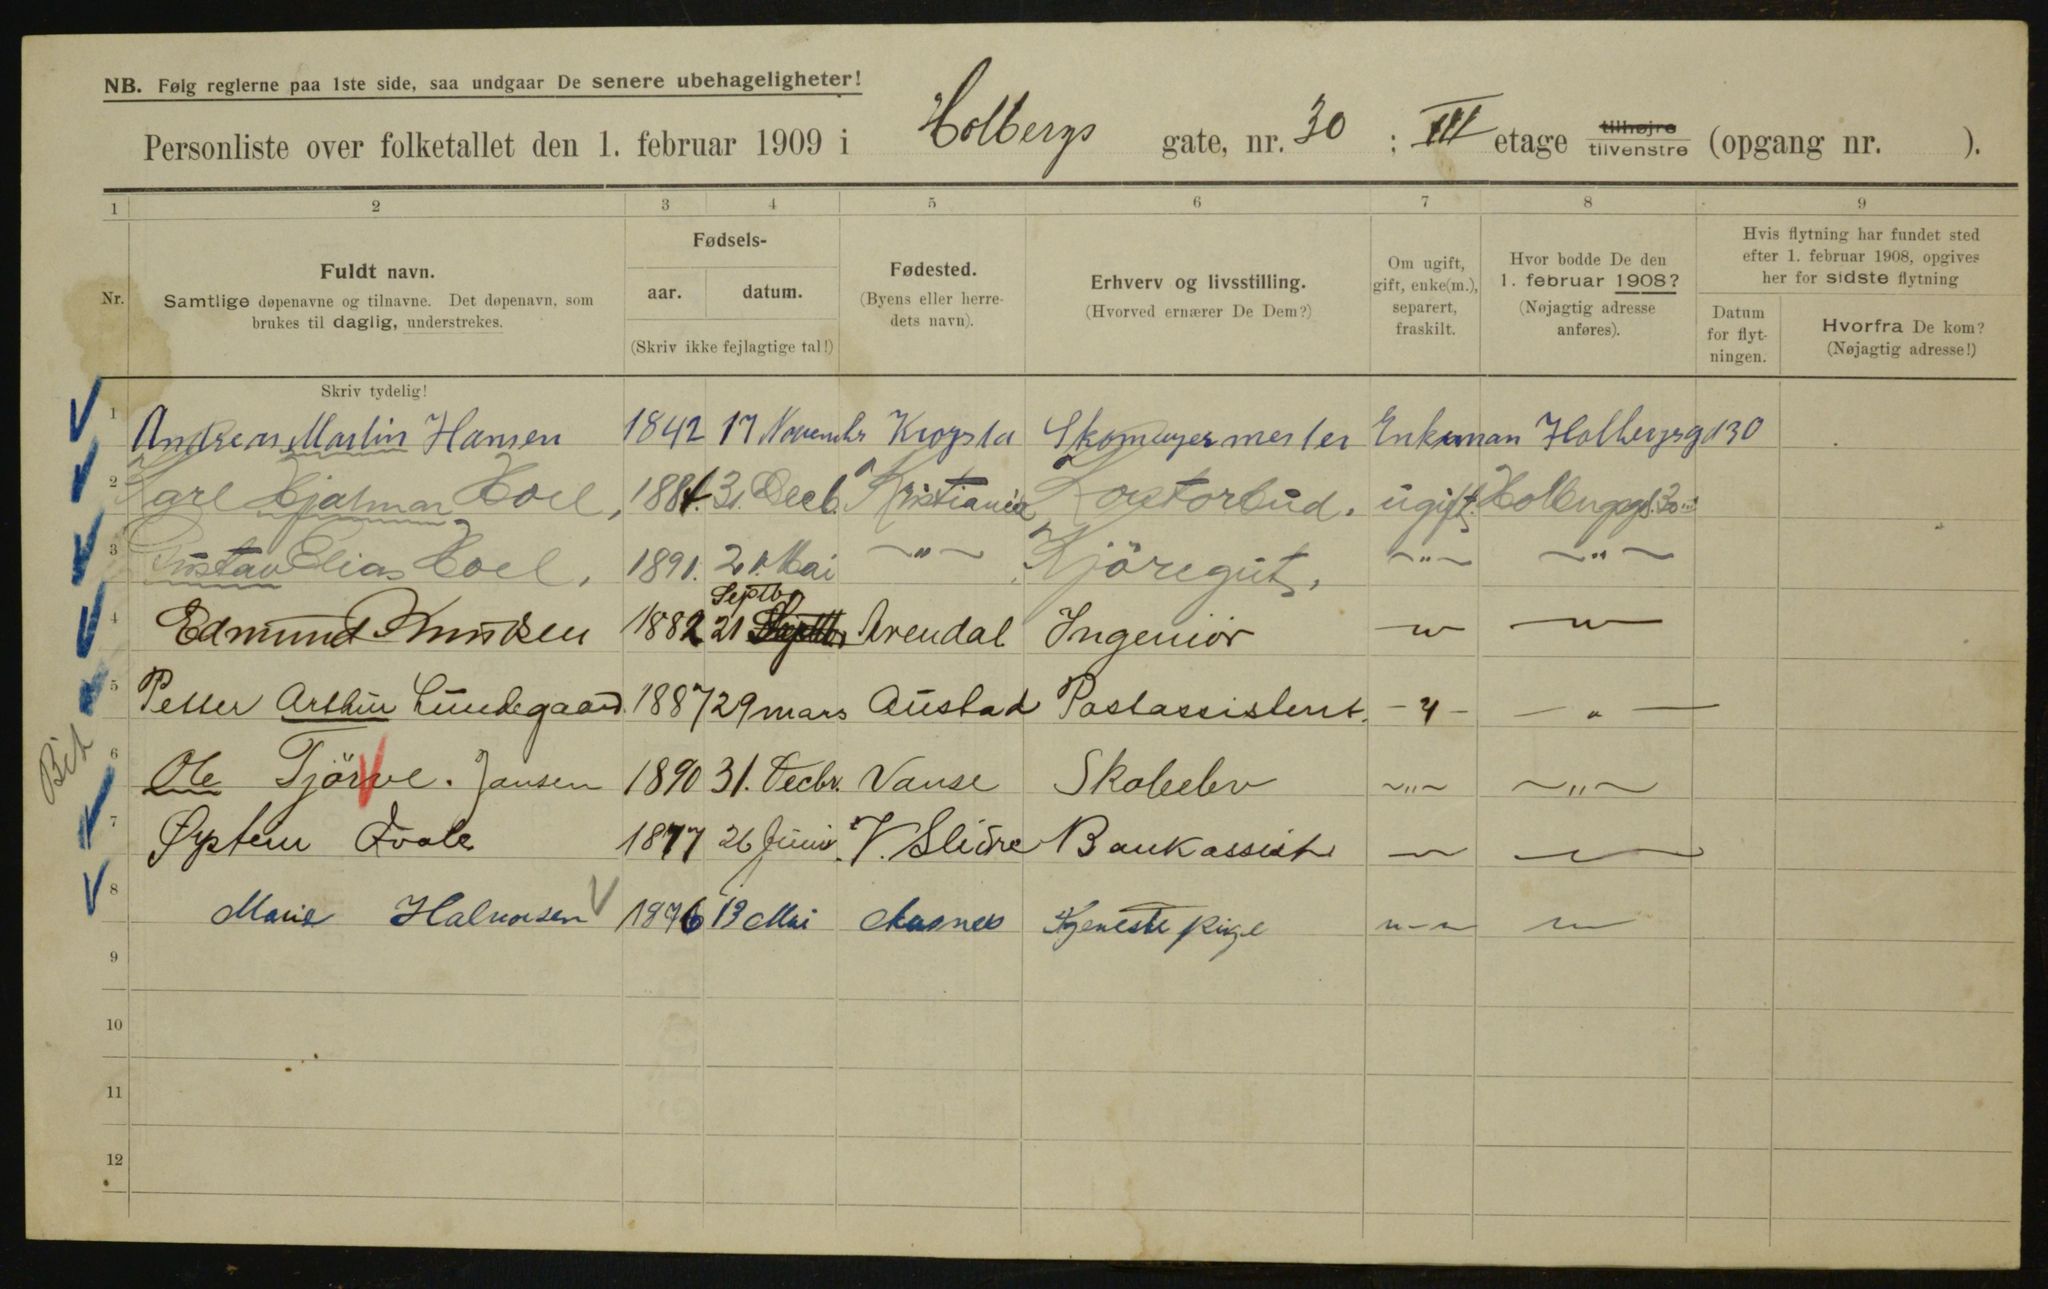 NB. Følg reglerne paa 1ste side, saa undgaar De senere ubehageligheter!
Personliste over folketallet den 1. februar 1909 i Holbergs gate, nr. 30 ; III etage tilhøjre tilvenstre (opgang nr. ).
1 2 3 4 5 6 7 8 9
Nr.
Fuldt navn.
Samtlige døpenavne og tilnavne. Det døpenavn, som
brukes til daglig, understrekes.
Fødsels-
aar. datum.
(Skriv ikke fejlagtige tal!)
Fødested.
(Byens eller herre-
dets navn).
Erhverv og livsstilling.
(Hvorved ernærer De Dem?)
Om ugift,
gift, enke(m.),
separert,
fraskilt.
Hvor bodde De den
1. februar 1908?
(Nøjagtig adresse
anføres).
Hvis flytning har fundet sted
efter 1. februar 1908, opgives
her for sidste flytning
Datum
for flyt-
ningen.
Hvorfra De kom?
(Nøjagtig adresse!)
Skriv tydelig!
1 Andreas Martin Hansen 1842 17 Novembr Krogsta Skomagermester Enkeman Holbergsgd 30
2 Karl Hjalmar Hoel, 1881. 31. Decb. Kristiania Kontorbud. ugift. Holbergsgd. 30
3 Gustav Elias Hoel, 1891. 21. Mai ~"~ Kjöregut, ~"~ ~"~
4 Edmund Knudsen 1882 21 Septbr Arendal Ingeniör — " — — " —
5 Petter Arthur Lundegaard. 1887 29 mars Austad Postassistent. - " - — " —
6 Ole Tjörve. Jansen 1890 31. Decbr. Vanse Skoleelev ~"~ ~"~
7 Øystein Kvale 1877 26 Juni V. Slidre Bankassist — " — — " —
8 Marie Halvorsen 1876 19 Mai Aasnes Tjeneste pige " - " "
9
10
11
12